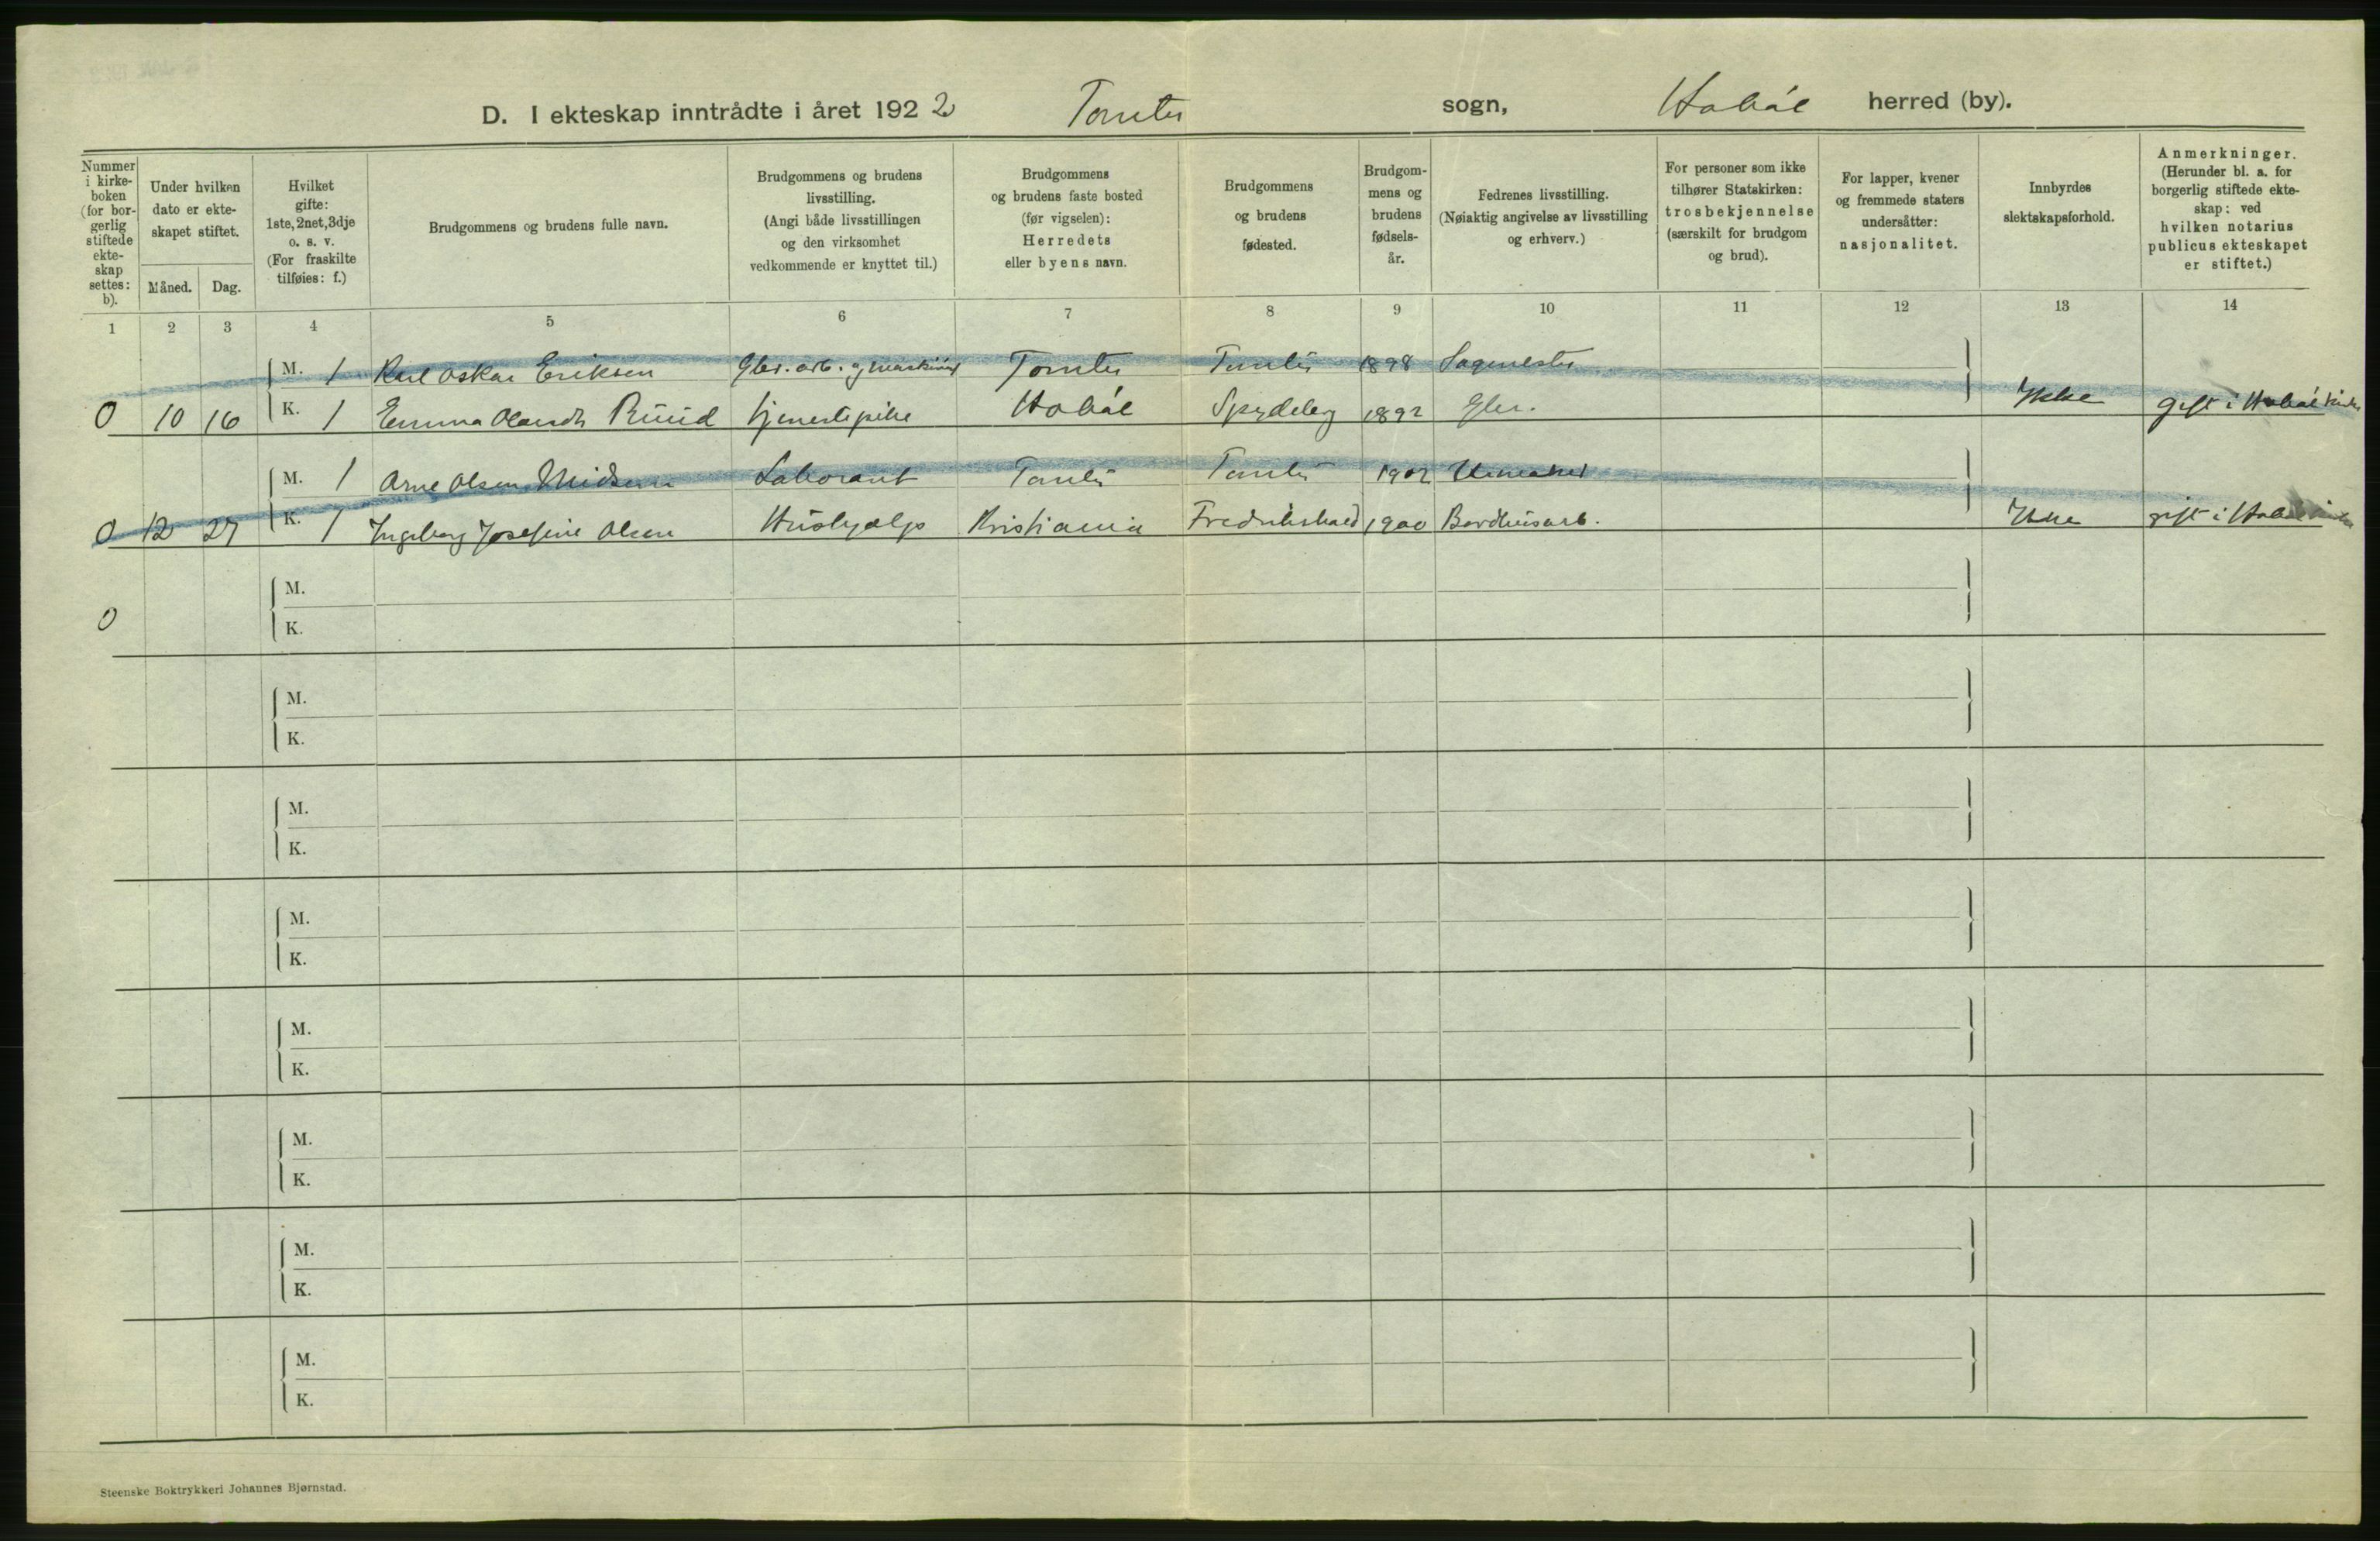 D. I ekteskap inntrådte i året 1922 Tomter sogn, Hobøl herred (by).
Nummer i kirke- boken (for bor- gerlig stiftede ekte- skap settes: b).
Under hvilken dato er ekte- skapet stiftet.
Måned. Dag.
Hvilket gifte: 1ste, 2net, 3dje o. s. v. (For fraskilte tilføies: f.)
Brudgommens og brudens fulle navn.
Brudgommens og brudens livsstilling. (Angi både livsstillingen og den virksomhet vedkommende er knyttet til.)
Brudgommens og brudens faste bosted (før vigselen): Herredets eller byens navn.
Brudgommens og brudens fødested.
Brudgom- mens og brudens fødsels- år.
Fedrenes livsstilling. (Nøiaktig angivelse av livsstilling og erhverv.)
For personer som ikke tilhører Statskirken: trosbekjennelse (særskilt for brudgom og brud).
For lapper, kvener og fremmede staters undersåtter: nasjonalitet.
Innbyrdes slektskapsforhold.
Anmerkninger. (Herunder bl. a. for borgerlig stiftede ekte- skap: ved hvilken notarius publicus ekteskapet er stiftet.)
1 2 3 4 5 6 7 8 9 10 11 12 13 14
M. 1 Karl Oskar Eriksen Gbr. arb. og Tomter Tomter 1898 Sagmester
0 10 16 K. 1 Emma Olausdtr Ruud tjenestepike Hobøl Spydeberg 1892 Gbr. Ikke gift i Hobøl kirke
M. 1 Arne Olsen Laborant Tomter Tomter 1902 Urmaker
0 12 27 K. 1 Ingeborg Josefine Olsen Hushjælp Kristiania Fredrikshald 1900 Ikke gift i Hobøl
0 M.
K.
M.
K.
M.
K.
M.
K.
M.
K.
M.
K.
M.
K.
M.
K.
Steenske Boktrykkeri Johannes Bjørnstad.